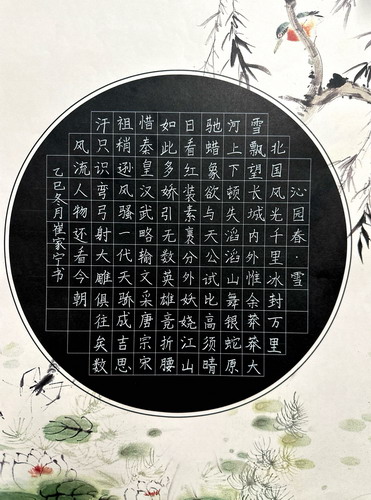 沁园春·雪
北国风光千里冰封万里
雪飘望长城内外惟余莽莽大
河上下顿失滔滔山舞银蛇原
驰蜡象欲与天公试比高须晴
日看红装素裹分外妖娆江山
如此多娇引无数英雄竞折腰
惜秦皇汉武略输文采唐宗宋
祖稍逊风骚一代天骄成吉思
汗只识弯弓射大雕俱往矣数
风流人物还看今朝
乙巳冬月崔家宁书